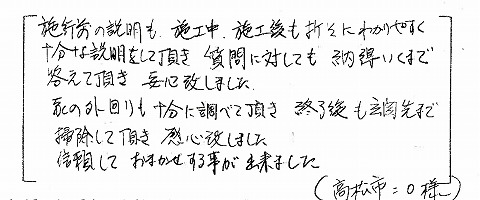 施行前の説明も、施工中、施工後も非常にわかりやすく
十分な説明をして頂き 質問に対しても 納得いくまで
答えて頂き 安心致しました
家の外回りも十分に調べて頂き 終了後も玄関先まで
掃除して頂き 感心致しました
信頼して おまかせする事が出来ました
(高松市:O様)